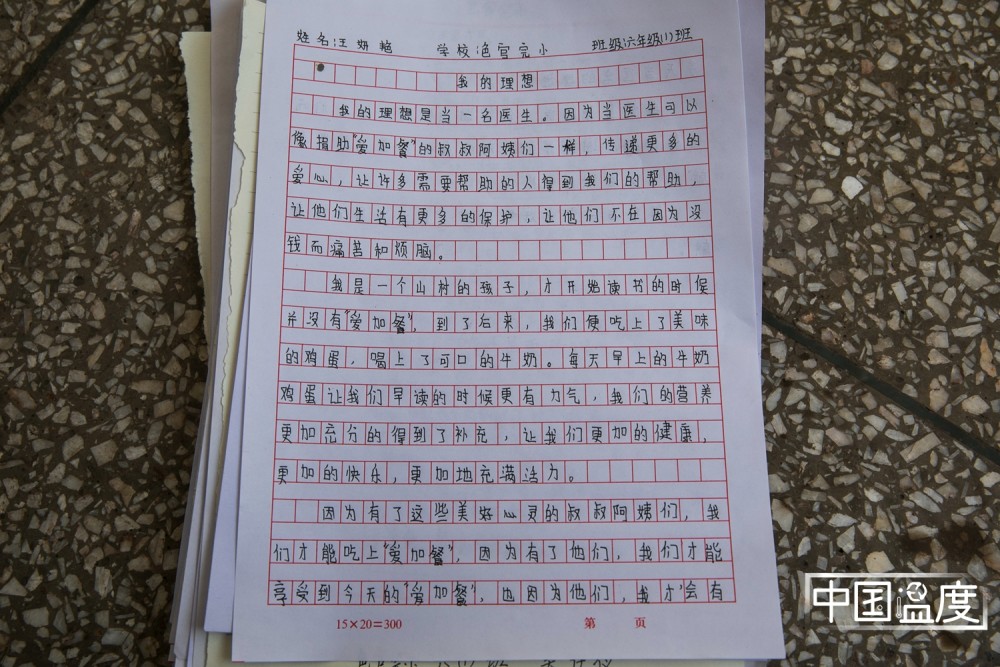 姓名:王妍艳 学校:沧宫完小 班级:六年级(1)班
我的理想
我的理想是当一名医生。因为当医生可以
像捐助“爱加餐”的叔叔阿姨们一样，传递更多的
爱心，让许多需要帮助的人得到我们的帮助，
让他们生活有更多的保护，让他们不在因为没
钱而痛苦和烦脑。
我是一个山村的孩子，才开始读书的时候
并没有“爱加餐”，到了后来，我们便吃上了美味
的鸡蛋，喝上了可口的牛奶。每天早上的牛奶
鸡蛋让我们早读的时候更有力气，我们的营养
更加充分的得到了补充，让我们更加的健康，
更加的快乐，更加地充满活力。
因为有了这些美好心灵的叔叔阿姨们，我
们才能吃上“爱加餐”，因为有了他们，我们才能
享受到今天的“爱加餐”，也因为他们，我才会有
15×20=300 第 页
中国温度